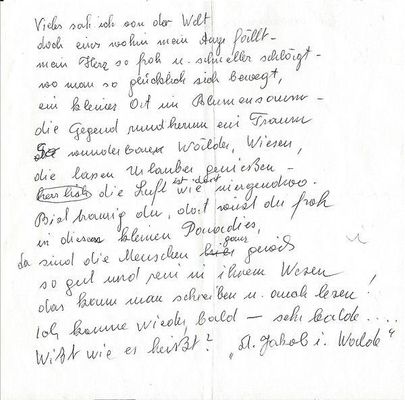 Vieles sah ich von der Welt
doch eines wohin mein Auge fällt -
mein Herz so froh u. schneller schlägt -
wo man so glücklich sich bewegt,
ein kleiner Ort im Blumensaum -
die Gegend rundherum ein Traum
wunderbare Wälder, Wiesen,
die lassen Urlauber genießen -
herrlich die Luft ist dort wie nirgendwo.
Bist traurig du, dort wirst du froh
in diesem kleinen Paradies,
da sind die Menschen ganz gewiß
so gut und rein in ihrem Wesen
das kann man schreiben u. auch lesen!
Ich komme wieder, bald — sehr balde ....
Wißt wie es heißt? „St. Jakob i. Walde"